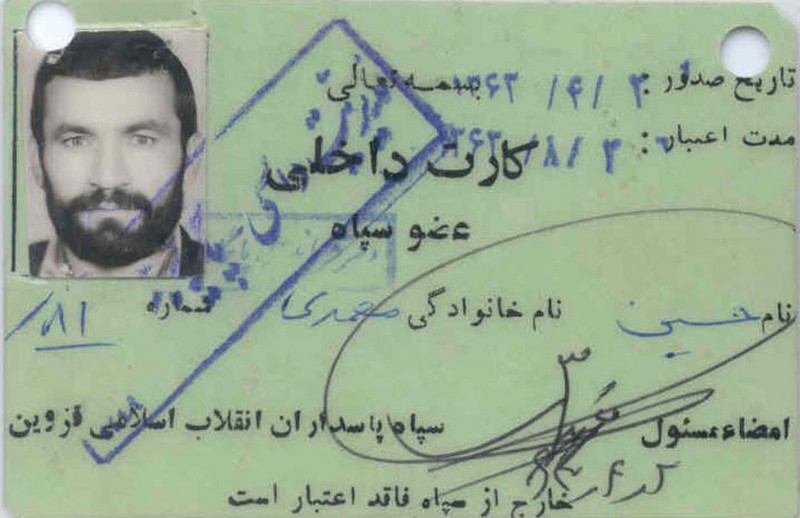 بسمه تعالی
تاریخ صدور : ۱۳۶۳/۴/۳
مدت اعتبار : ۱۳۶۳/۸/۳
کارت داخلی
عضو سپاه
نام حسین نام خانوادگی محمدی شماره ۸۱/
امضاء مسئول سپاه پاسداران انقلاب اسلامی قزوین
خارج از سپاه فاقد اعتبار است